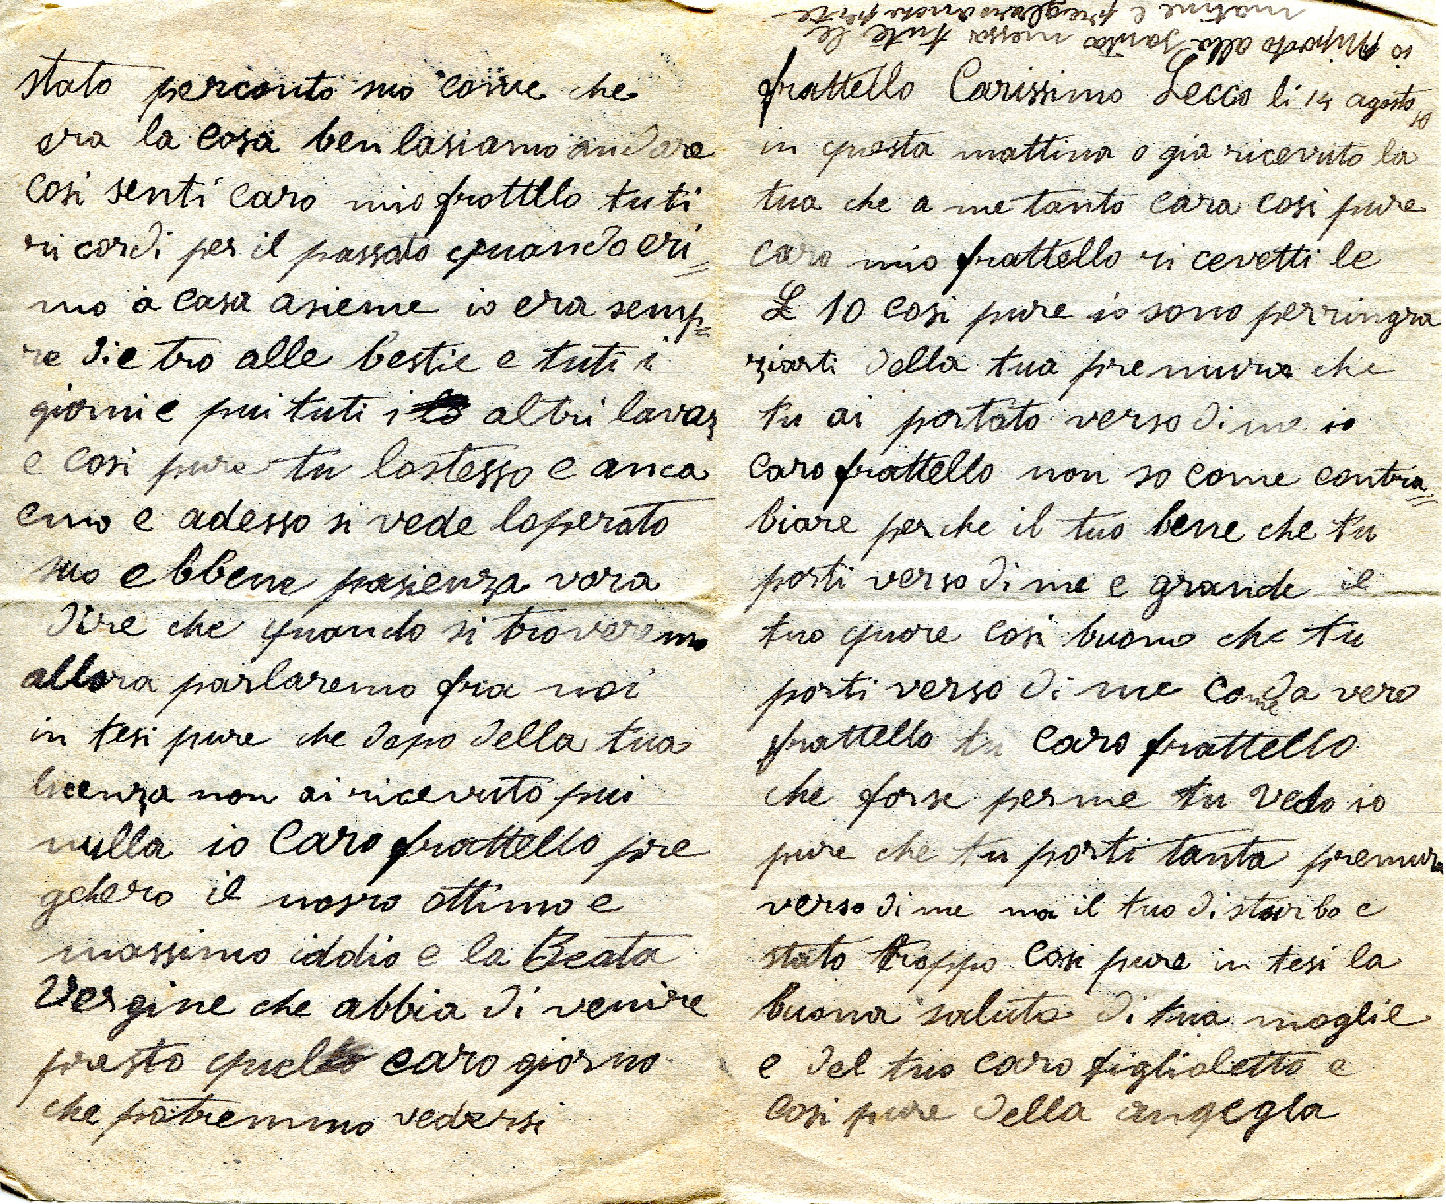 frattello Carissimo Lecco li 14 agosto
in questa mattina o già ricevuto la
tua che a me tanto cara cosi pure
caro mio frattello ricevetti le
£ 10 cosi pure io sono perringra
ziarti della tua premura che
tu ai portato verso di me io
caro frattello non so come contra=
biare perche il tuo bene che tu
porti verso di me e grande il
tuo quore cosi buono che tu
porti verso di me come da vero
frattello tu caro frattello
che forse per me tu vedo io
pure che tu porti tanta premura
verso di me ma il tuo disturbo e
stato troppo cosi pure in tesi la
buona saluta di tua moglie
e del tuo caro figlioletto e
cosi pure della
stato perconto suo come che
era la cosa ben lasiamo andare
cosi senti caro mio frottello tuti
ricordi per il passato quando eri=
mo a casa asieme io era semp=
re dietro alle bestie e tuti i
giorni e pui tuti i altri lavar
e cosi pure tu lostesso e anca
emo e adesso si vede loperato
suo ebbene pasienza vora
dire che quando si troveremo
allora parlaremo fra noi
in tesi pure che dopo della tua
licenza non ai ricevuto pui
nulla io Caro frattello pre
gehero il nosro ottimo e
massimo iddio e la Beata
Vergine che abbia di venire
presto quel caro giorno
che potremmo vedersi
io alla santa messa tute le
matine e